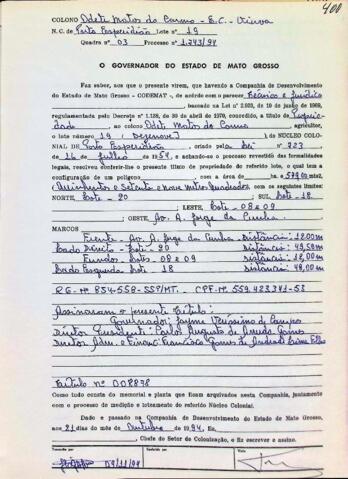 400
COLONO Odete Matos do Carmo - E.C. - Viúva
N. C. de Porto Esperidião Lote n° 19
Quadra n° 03 Processo n° 1.243/94
O GOVERNADOR DO ESTADO DE MATO GROSSO
Faz saber, aos que o presente virem, que havendo a Companhia de Desenvolvimento
do Estado de Mato Grosso - CODEMAT -, de acordo com o parecer Técnico e Jurídico
, baseado na Lei n° 2.925, de 10 de junho de 1969,
regulamentada pelo Decreto n° 1.138, de 30 de abril de 1970, concedido a título de
dade ao colono Odete Matos do Carmo agricultor,
o lote número 19 (Dezenove) do NÚCLEO COLO-
NIAL DE Porto Esperidião, criado pela Lei n° 223
de 16 de Julho de 1954, e achando-se o processo revestido das formalidades
legais, resolveu conferir-lhe o presente título de propriedade do referido lote, o qual tem a
configuração de um polígono com a área de ha. 579,00 mts2
Quinhentos e Setenta e nove metros quadrados, com os seguintes limites:
NORTE, Lote - 20 SUL, Lote - 18
LESTE, Lote - 08 e 09
OESTE, Av. A. Jorge da Cunha.
MARCOS
Frente - Av. A. Jorge da Cunha - Distância: 12.00m
Lado Direito - Lote - 20 Distância: 48,50m
Fundos - Lote - 08 e 09 Distância: 12,00m
Lado Esquerdo - Lote - 18 Distância: 48,00m
RG - Nº 854-558-SSP/MT. - CPF-Nº 559.423.341-53
Assinaram o presente Título:
Governador: Jayme Veríssimo de Campos
Diretor Presidente: Carlos Augusto de Arruda Gomes
Diretor Adm. e Financ: Francisco Gomes de Andrade Lima Filho
Título nº 008898
Como tudo consta do memorial e planta que ficam arquivados nesta Companhia, juntamente
com o processo de medição e loteamento do referido Núcleo Colonial.
Dado e passado na Companhia de Desenvolvimento do Estado de Mato Grosso,
aos 21 dias do mês de Outubro de 1994, Eu,
, Chefe do Setor de Colonização, o fiz escrever e assino.
Transcrito por Conferido por Visto
09/11/94